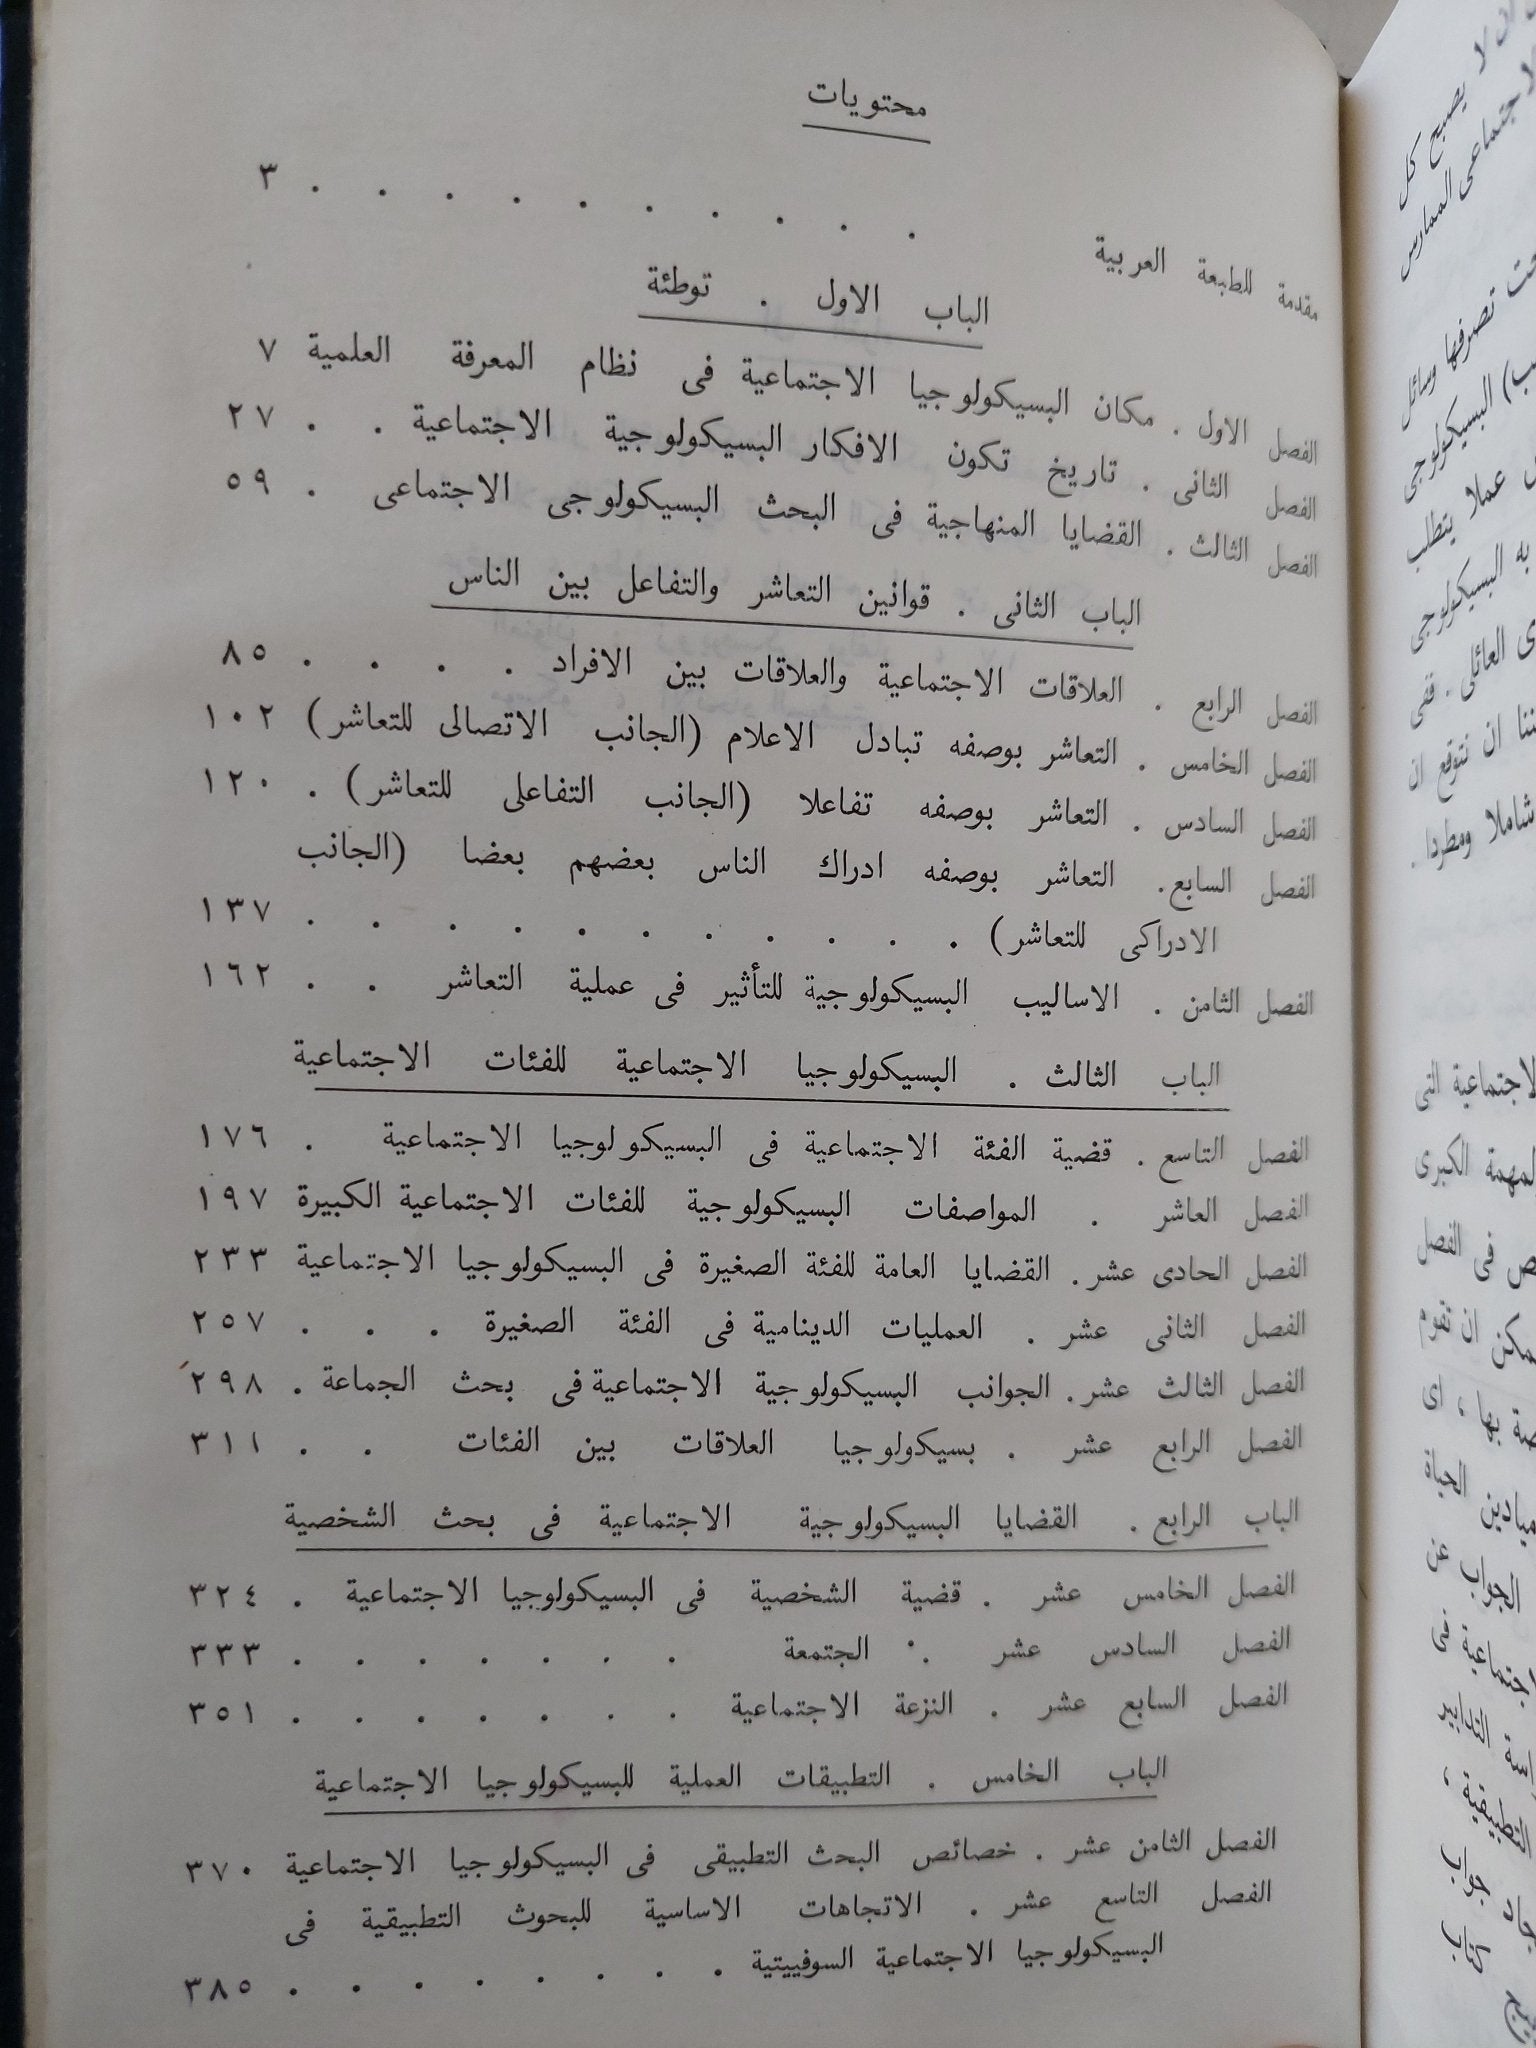 محتويات
مقدمة للطبعة العربية . . . . . . . . . . ٣
الباب الاول . توطئة
الفصل الاول . مكان البسيكولوجيا الاجتماعية فى نظام المعرفة العلمية ٧
الفصل الثانى . تاريخ تكون الافكار البسيكولوجية الاجتماعية . . ٢٧
الفصل الثالث . القضايا المنهاجية فى البحث البسيكولوجى الاجتماعى . ٥٩
الباب الثانى . قوانين التعاشر والتفاعل بين الناس
الفصل الرابع . العلاقات الاجتماعية والعلاقات بين الافراد . . . . ٨٥
الفصل الخامس . التعاشر بوصفه تبادل الاعلام (الجانب الاتصالى للتعاشر) ١٠٢
الفصل السادس . التعاشر بوصفه تفاعلا (الجانب التفاعلى للتعاشر) . ١٢٠
الفصل السابع . التعاشر بوصفه ادراك الناس بعضهم بعضا (الجانب
الادراكى للتعاشر) . . . . . . . . . . . ١٣٧
الفصل الثامن . الاساليب البسيكولوجية للتأثير فى عملية التعاشر . . ١٦٢
الباب الثالث . البسيكولوجيا الاجتماعية للفئات الاجتماعية
الفصل التاسع . قضية الفئة الاجتماعية فى البسيكولوجيا الاجتماعية . ١٧٦
الفصل العاشر . المواصفات البسيكولوجية للفئات الاجتماعية الكبيرة ١٩٧
الفصل الحادى عشر . القضايا العامة للفئة الصغيرة فى البسيكولوجيا الاجتماعية ٢٣٣
الفصل الثانى عشر . العمليات الدينامية فى الفئة الصغيرة . . . ٢٥٧
الفصل الثالث عشر . الجوانب البسيكولوجية الاجتماعية فى بحث الجماعة . ٢٩٨
الفصل الرابع عشر . بسيكولوجيا العلاقات بين الفئات . . ٣١١
الباب الرابع . القضايا البسيكولوجية الاجتماعية فى بحث الشخصية
الفصل الخامس عشر . قضية الشخصية فى البسيكولوجيا الاجتماعية . ٣٢٤
الفصل السادس عشر . الجتمعة . . . . . . . ٣٣٣
الفصل السابع عشر . النزعة الاجتماعية . . . . . . . ٣٥١
الباب الخامس . التطبيقات العملية للبسيكولوجيا الاجتماعية
الفصل الثامن عشر . خصائص البحث التطبيقى فى البسيكولوجيا الاجتماعية ٣٧٠
الفصل التاسع عشر . الاتجاهات الاساسية للبحوث التطبيقية فى
البسيكولوجيا الاجتماعية السوفييتية . . . . . . . . ٣٨٥
يصبح كل
الممارس
تصرفها وسائل
البسيكولوجى
عملا يتطلب
به البسيكولوجى
العائلى . ففى
ان نتوقع ان
شاملا ومطردا .
الاجتماعية التى
المهمة الكبرى
فى الفصل
ان تقوم
بها ، اى
ميادين الحياة
الجواب عن
فى
التدابير
التطبيقية ،
جواب
كتاب